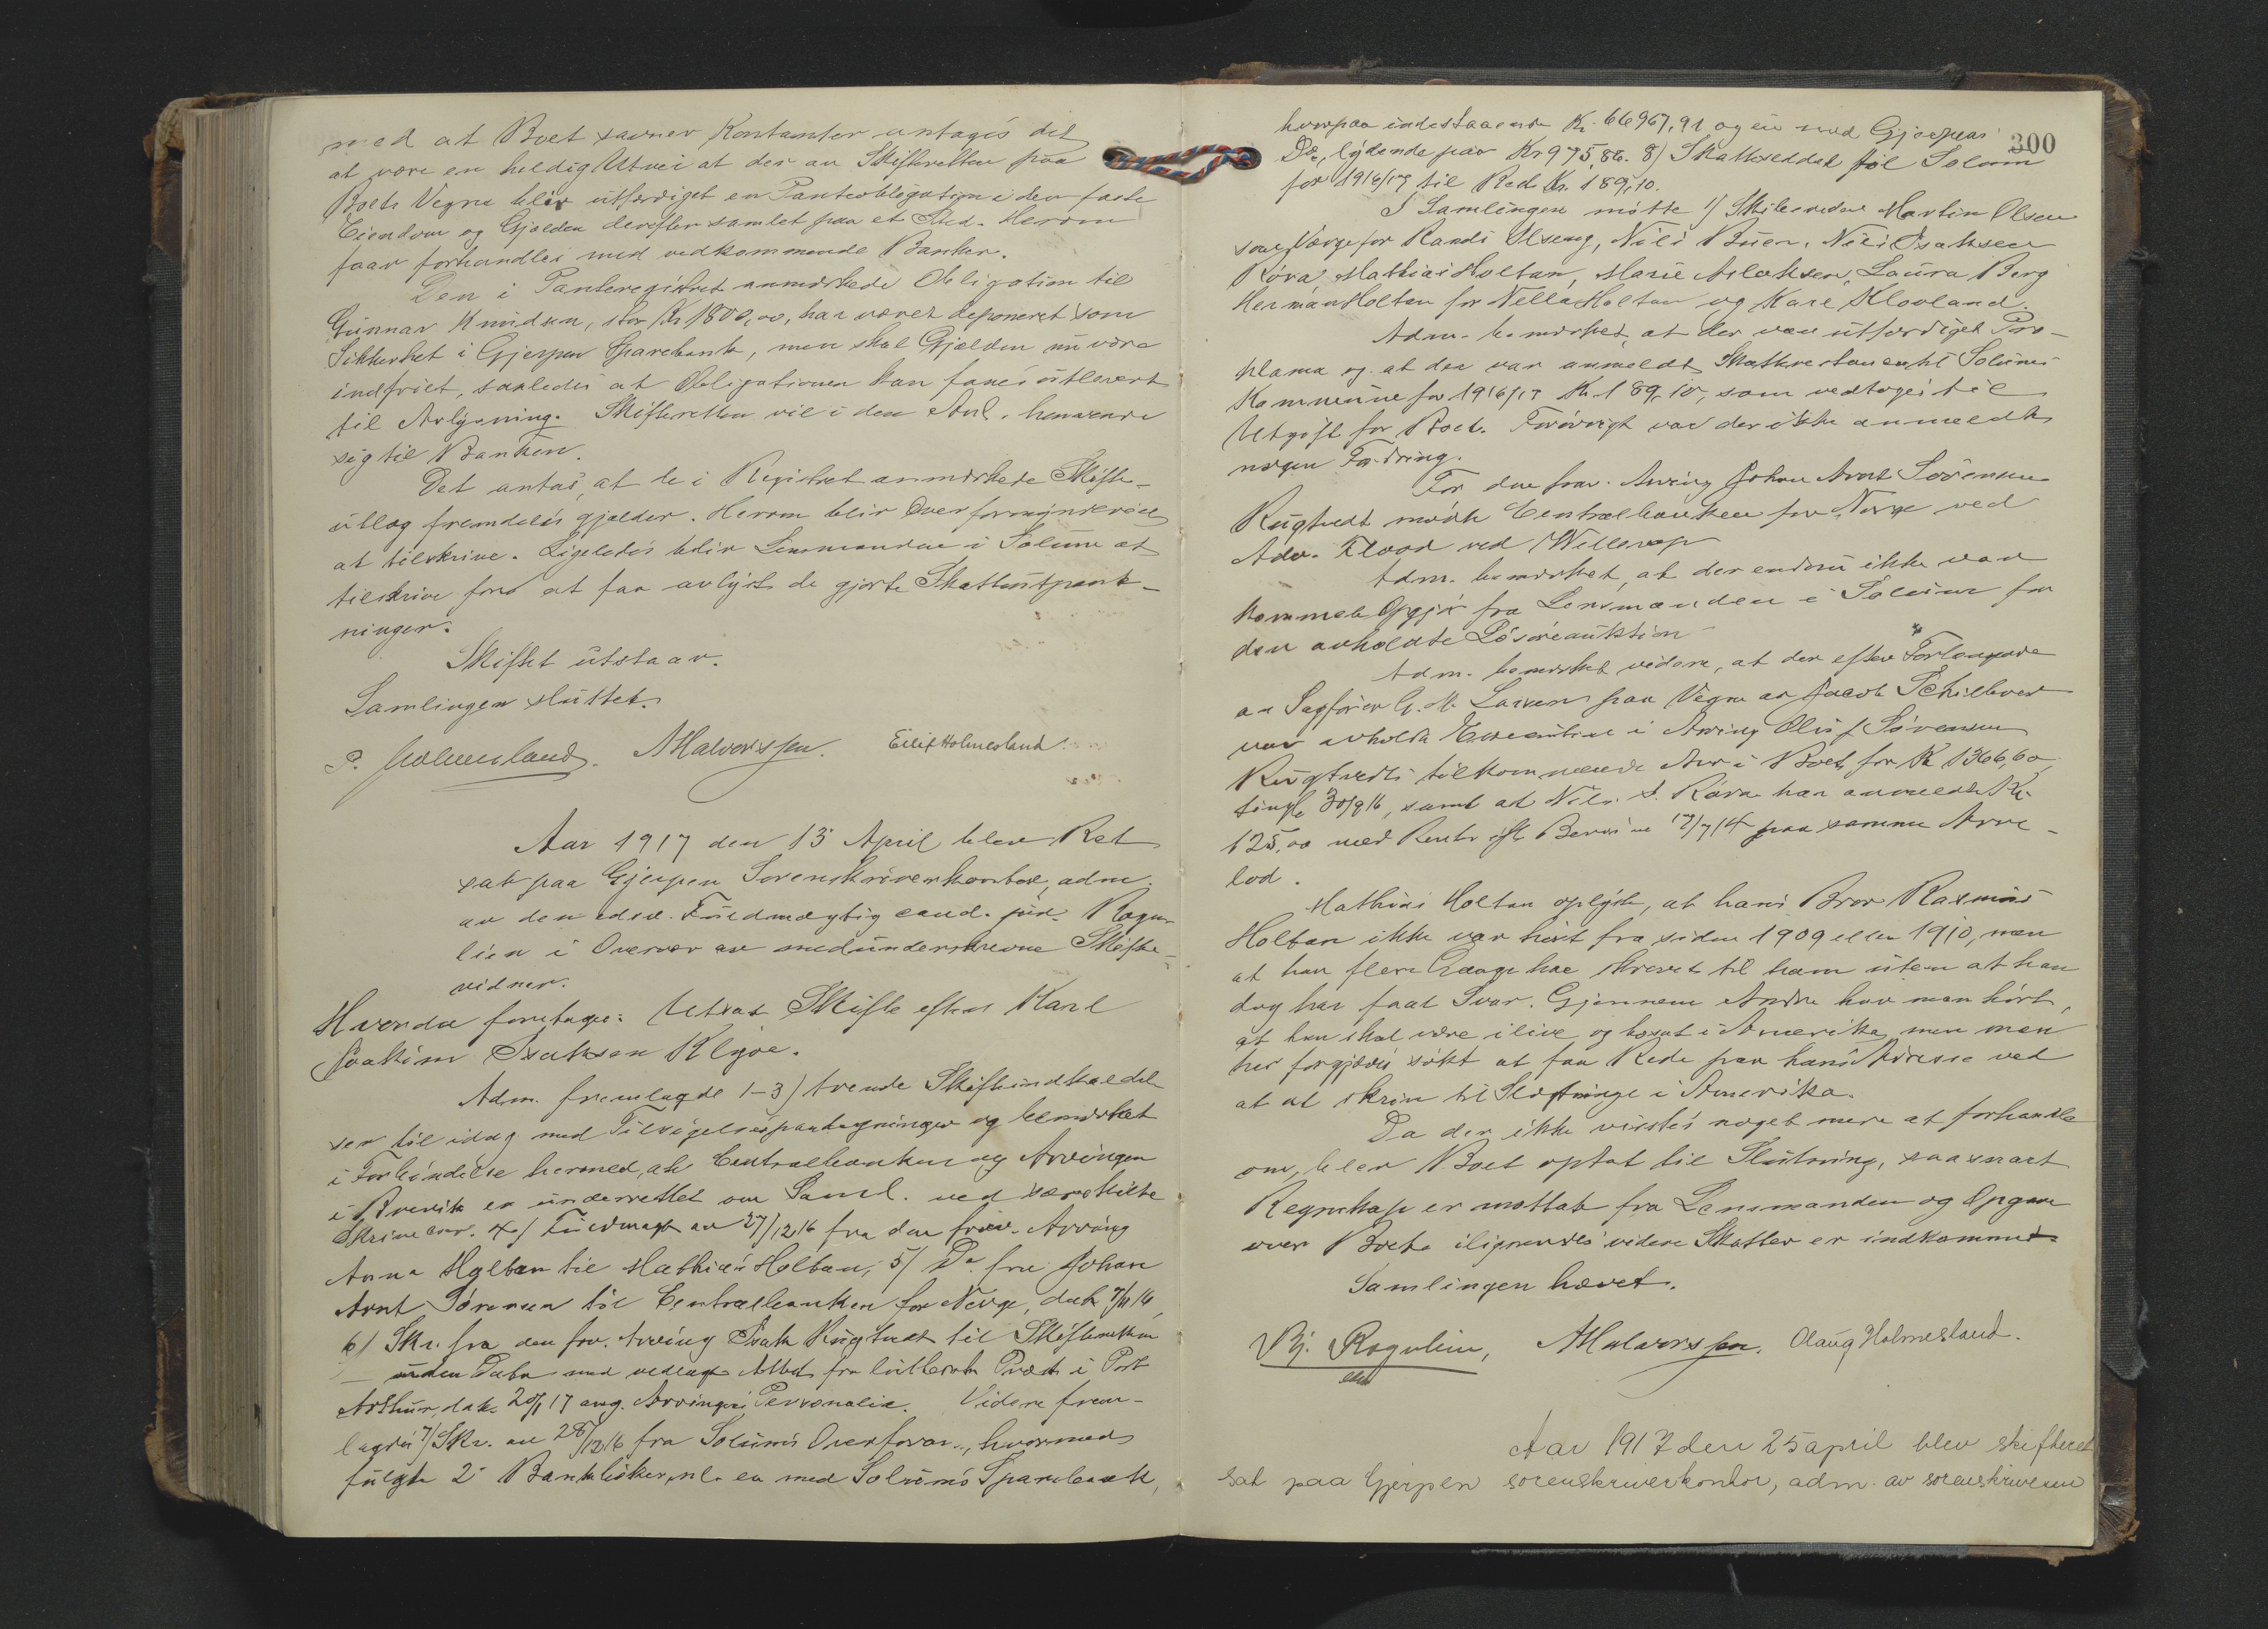 med at Boet savner Kontanter antages det
at være en heldig Utvei at der av Skifteretten paa
Boets Vegne blir utfærdiget en Panteobligation i den faste
Eiendom og Gjælden derefter samlet paa et Sted. Herom
faar forhandles med vedkommende Banker.
Den i Panteregistret anmerkede Obligation til
Gunnar Knudsen, stor Kr 1800,00, har været deponeret som
Sikkerhet i Gjerpen Sparebank, men skal Gjælden nu være
indfriet, saaledes at Obligationen kan faaes utlevert
til Avlysning. Skifteretten vil i den Anl. henvende
sig til Banken.
Det antas, at de i Registret anmerkede Skifte-
utlæg fremdeles gjælder. Herom blir Overformynderiet
at tilskrive. Ligeledes blir Lensmanden i Solum at
tilskrive for at faa avlyst de gjorte Skatteutpant-
ninger.
Skiftet utstaar.
Samlingen sluttet.
P. Holmesland. A Halvorssen. Eilif Holmesland
Aar 1917 den 13 April blev Ret
sat paa Gjerpen Sorenskriverkontor, adm.
av den edsv. Fuldmægtig cand. jur. Rogn-
lien i Overvær av medunderskrevne Skifte-
vidner.
Hvorda foretages: Utvat Skifte efter Karl
Joakim Isaksen Klyve.
Adm. fremlagde 1-3) trende Skifteindkaldel-
ser til idag med Tilsigelsespaategninger og bemerket
i Forbindelse hermed, at Centralbanken og Arvingen
i Brevik er underrettet om Saml. ved særskilte
Skrivelser. 4) Fuldmagt av 27/12 16 fra den frav. Arving
Anna Holtan til Mathias Holtan, 5) Do fra Johan
Arnt Sørensen til Centralbanken for Norge, dat. 7/11 16,
6) Skr. fra den frv. Arving Isak Rugtvedt til Skifteretten
– uden Dato med vedlagt Attest fra luthersk Præst i Port
Arthur, dat. 20/1 17 ang. Arvingens Personalia. Videre frem-
lagdes 7) Skr. av 28/12 16 fra Solums Overform., hvormed
fulgte 2 Bankbøker, nl. en med Solums Sparebank,
300
hvorpaa indestaaende Kr. 66967,91 og en med Gjerpens
Do, lydende paa Kr 975,86. 8) Skatteseddel til Solum
for 1916/17 til Rest Kr. 189,10.
I Samlingen møtte 1) Skibsreder Martin Olsen
som Værge for Randi Olseng, Nils Buer, Nils Isaksen
Røra, Mathias Holtan, Marie Aslaksen, Laura Berg
Herman Holtan for Nella Holtan og Kare Klovland.
Adm. bemerket, at der var utfærdiget Pro-
klama og at der var anmeldt Skatterestance til Solums
Kommune for 1916/17 Kr. 189,10, som vedtoges til
Utgift for Boet. Forøvrigt var der ikke anmeldt
nogen Fordring.
For den frav. Arving Johan Arnt Sørensen
Rugtvedt møtte Centralbanken for Norge ved
Adv. Flood ved Willerup
Adm. bemerket, at der endnu ikke var
kommet Opgjør fra Lensmanden i Solum for
den avholdte Løsøreauktion
Adm. bemerket videre, at der efter Forlangende
av Sagfører G. M. Larsen paa Vegne av Jacob Schilbred
var avholdt Execution i Arving Oluf Sørensen
Rugtvedts tilkommende Arv i Boet for Kr 1366,60,
tingl. 30/9 16, samt at Nils I. Røra har anmeldt Kr.
125,00 med Renter ifl. Bevis av 17/7 14 paa samme Arve-
lod.
Mathias Holtan oplyste, at hans Bror Rasmus
Holtan ikke var hørt fra siden 1909 eller 1910, men
at han flere Gange har skrevet til ham uten at han
dog har faat Svar. Gjennem Andre har man hørt,
at han skal være ilive og bosat i Amerika, men man
har forgjæves søkt at faa Rede paa hans Adresse ved
at at skrive til Slægtninge i Amerika.
Da der ikke visstes noget mere at forhandle
om, blev Boet optat til Slutning, saasnart
Regnskap er mottat fra Lensmanden og Opgave
over Boets ilignendes videre Skatter er indkommet.
Samlingen hævet.
Bj. Rognlien, A Halvorssen. Olaug Holmesland.
edsv
Aar 1917 den 25 april blev skifteret
sat paa Gjerpen sorenskriverkontor, adm. av sorenskriveren